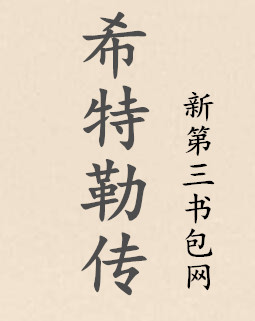 希特勒传
新第三书包网